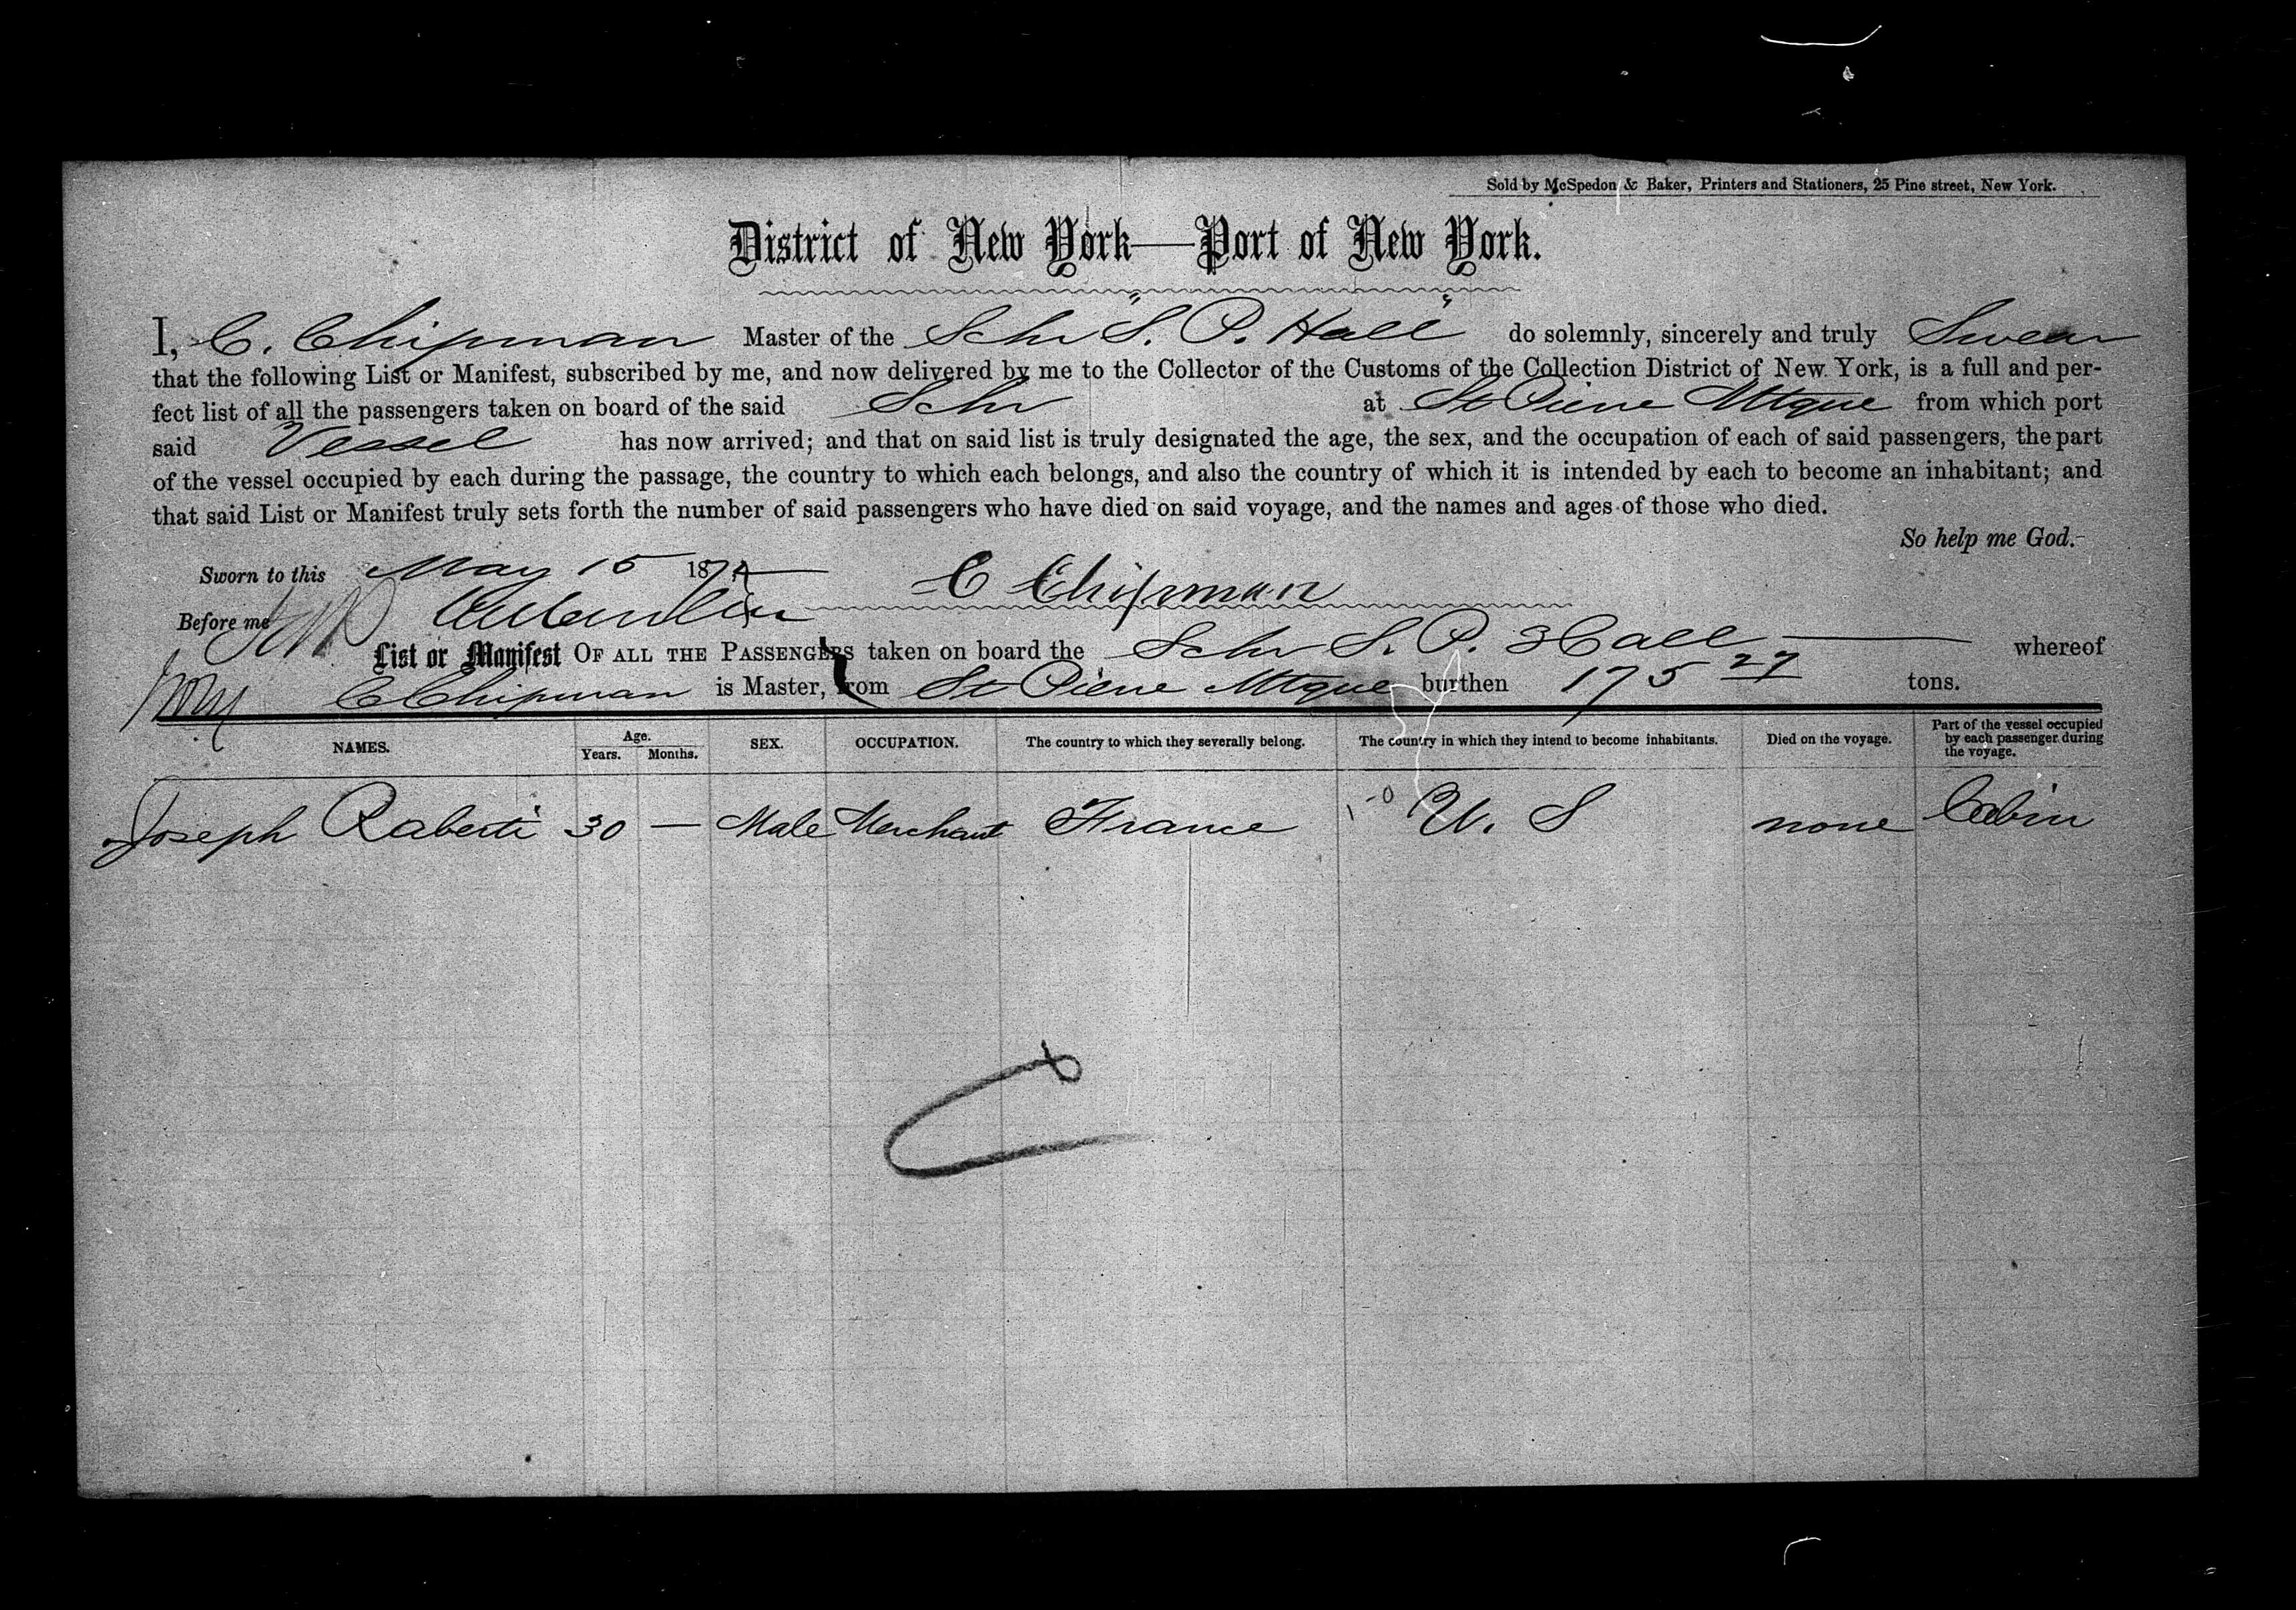 Sold by McSpedon & Baker, Printers and Stationers, 25 Pine street, New York.
District of New York—Port of New York.
I, C. Chipman Master of the Schr "S. P. Hall" do solemnly, sincerely and truly Swear
that the following List or Manifest, subscribed by me, and now delivered by me to the Collector of the Customs of the Collection District of New York, is a full and per-
fect list of all the passengers taken on board of the said Schr at St Pierre Mtque from which port
said Vessel has now arrived; and that on said list is truly designated the age, the sex, and the occupation of each of said passengers, the part
of the vessel occupied by each during the passage, the country to which each belongs, and also the country of which it is intended by each to become an inhabitant; and
that said List or Manifest truly sets forth the number of said passengers who have died on said voyage, and the names and ages of those who died.
So help me God.
Sworn to this May 15 187
C Chipman
Before me
List or Manifest OF ALL THE PASSENGERS taken on board the Schr S. P. Hall whereof
C Chipman is Master, from St Pierre Mtque burthen 175 27 tons.
NAMES. Age. Years. Months. SEX. OCCUPATION. The country to which they severally belong. The country in which they intend to become inhabitants. Died on the voyage. Part of the vessel occupied by each passenger during the voyage.
Joseph Raberti 30 — Male Merchant France U. S none Cabin